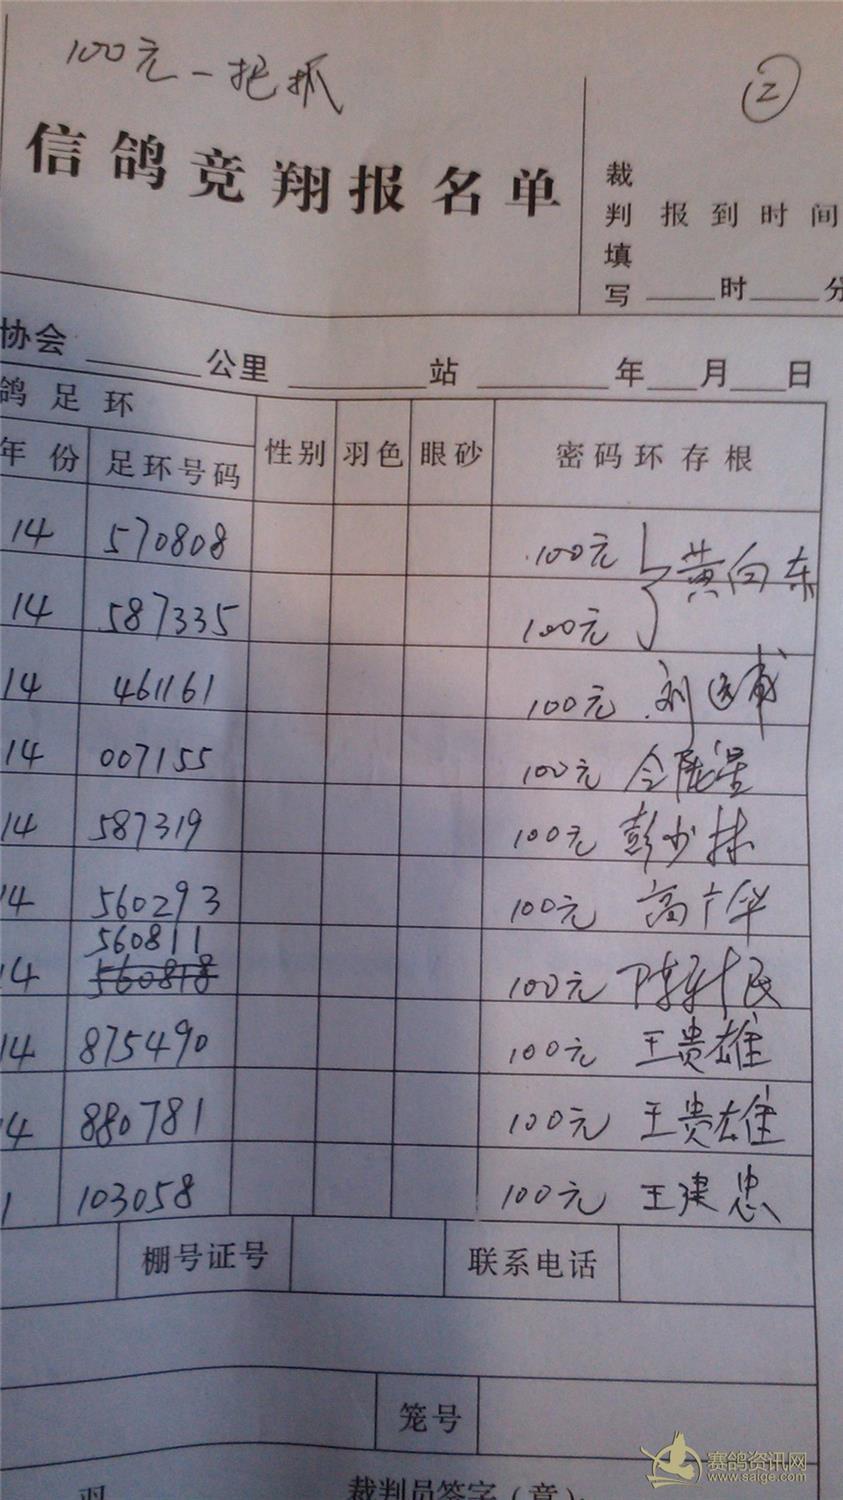 100元一把抓
②
信鸽竞翔报名单
裁判填写
报到时间
时 分
协会 公里 站 年 月 日
鸽足环
年份 足环号码 性别 羽色 眼砂 密码环存根
14 570808 100元 黄向东
14 587335 100元
14 461161 100元 刘
14 007155 100元
14 587319 100元 彭少林
14 560293 100元 高广华
560811
14 560818 100元 陈新民
14 875490 100元 王贵雄
4 880781 100元 王贵雄
1 103058 100元 王建忠
棚号证号 联系电话
笼号
羽 裁判员签字(章):
赛鸽资讯网
www.saige.com